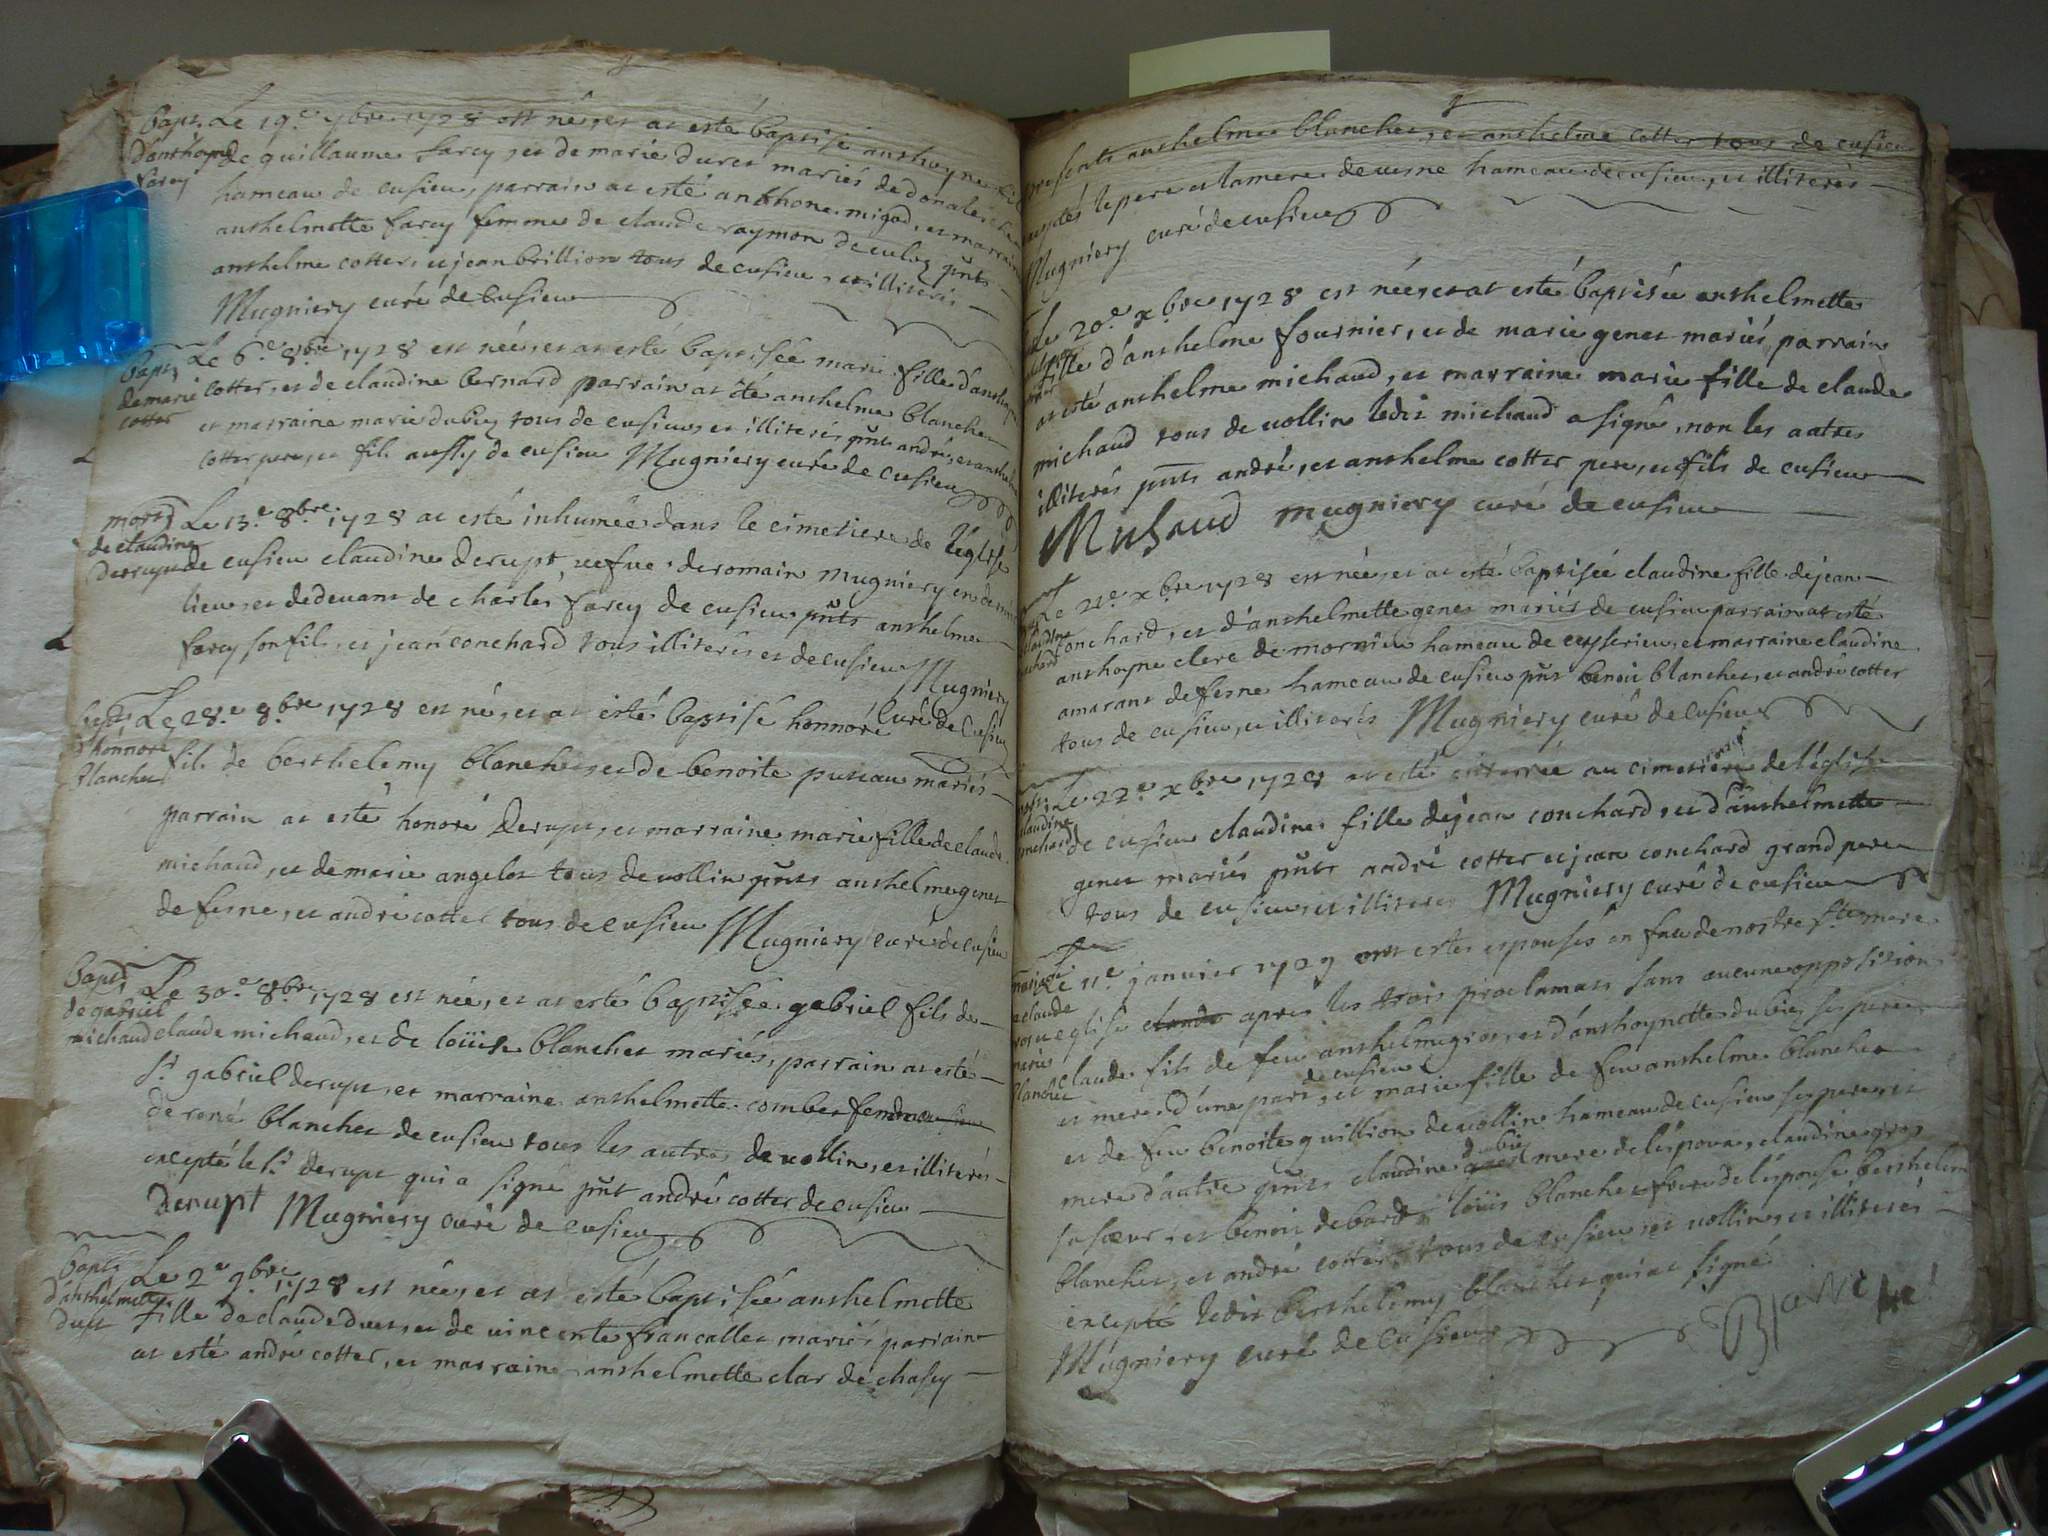 Bapt. Le 19.e 7bre 1728 est né, et at esté baptisé anthoyne fils
d'anthoyne de guillaume farcy, et de marie duret mariés de donale
farcy hameau de cusieu, parrain at esté anthone migod, et marraine
anthelmette farcy femme de claude raymon de culoz pñts
anthelme cotter, et jean brillion tous de cusieu, et illiterés
Mugniery curé de Cusieu
Bapt. Le 6.e 8bre 1728 est née, et at esté baptisée marie fille d'anthelme
de marie cotter, et de claudine bernard parrain at été anthelme blanchet
cotter et marraine marie dubiez tous de cusieu, et illiterés pñts andré, et anthelme
cotter pere, et fils aussy de cusieu Mugniery curé de cusieu
mort Le 13.e 8bre 1728 at esté inhumée dans le cimetiere de l'église
de claudine
derupt de cusieu claudine derupt vefue de romain mugniery en dernier
lieu, et dedevant de charles farcy de cusieu pñts anthelme
farcy son fils, et jean conchard tous illiterés et de cusieu Mugniery
curé de Cusieu
Bapt. Le 28.e 8bre 1728 est né, et at esté baptisé honnoré
d'honnoré fils de berthelemy blanchet, et de benoite puteau mariés
blanchet
parrain at esté honoré Derupt, et marraine marie fille de claude
michaud, et de marie angelot tous de vollin pñts anthelme genet
de ferne, et andré cotter tous de cusieu Mugniery curé de Cusieu
Bapt. Le 30.e 8bre 1728 est née, et at esté baptisée gabriel fils de
de gabriel
michaud claude michaud, et de loüise blanchet mariés, parrain at esté
Sr. gabriel derupt, et marraine anthelmette combet femme
de rené blanchet de cusieu tous les autres de vollin, et illiterés
excepté le Sr. derupt qui a signe pñt andré cotter de cusieu
Derupt Mugniery curé de cusieu
bapt. Le 2.e 9bre 1728 est née, et at esté baptisée anthelmette
d'anthelmette
duet fille de claude duet, et de vincente francallet mariés parrain
at esté andré cotter, et marraine anthelmette clar de chasey
presents anthelme blanchet, et anthelme cotter tous de cusieu
exceptés le pere et la mere de verne hameau de cusieu, et illiterés
Mugniery curé de cusieu
Le 20.e xbre 1728 est née, et at esté baptisée anthelmette
fille d'anthelme fournier, et de marie genet mariés, parrain
at esté anthelme michaud, et marraine marie fille de claude
michaud tous de vollin ledit michaud a signé, non les autres
illiterés pñts andré, et anthelme cotter pere, et fils de cusieu
Michaud mugniery curé de cusieu
Le 21.e xbre 1728 est née, et at esté baptisée claudine fille de jean
conchard, et d'anthelmette genet mariés de cusieu parrain at esté
anthoyne clerc de mornieu hameau de ceyserieu, et marraine claudine
amarant de ferne hameau de cusieu pñts benoit blanchet, et andré cotter
tous de cusieu, et illiterés Mugniery curé de Cusieu
Le 22.e xbre 1728 at esté enterrée au cimetière de l'église
claudine
conchard de cusieu claudine fille de jean conchard, et d'anthelmette
genet mariés pñts andré cotter et jean conchard grand pere
tous de cusieu, et illiteres Mugniery curé de cusieu
mariage Le 11.e janvier 1729 ont estes espousés en face de nostre Ste mere
claude
eglise claude apres les trois proclamats sans aucune opposition
marie claude fils de feu anthelme gros, et d'anthoynette dubiez ses pere
blanchet et mere d'une part de cusieu, et marie fille de feu anthelme blanchet
et de feu benoite guillion de vollin hameau de cusieu ses pere, et
mere d'autre pñts claudine dubiez mere de l'époux, claudine gros
sa soeur, et benoit debard, loüis blanchet frere de l'épouse, berthelemy
blanchet, et andré cotter tous de cusieu, et vollin, et illiterés
excepté ledit berthelemy blanchet qui at signé
Mugniery curé de cusieu Blanchet